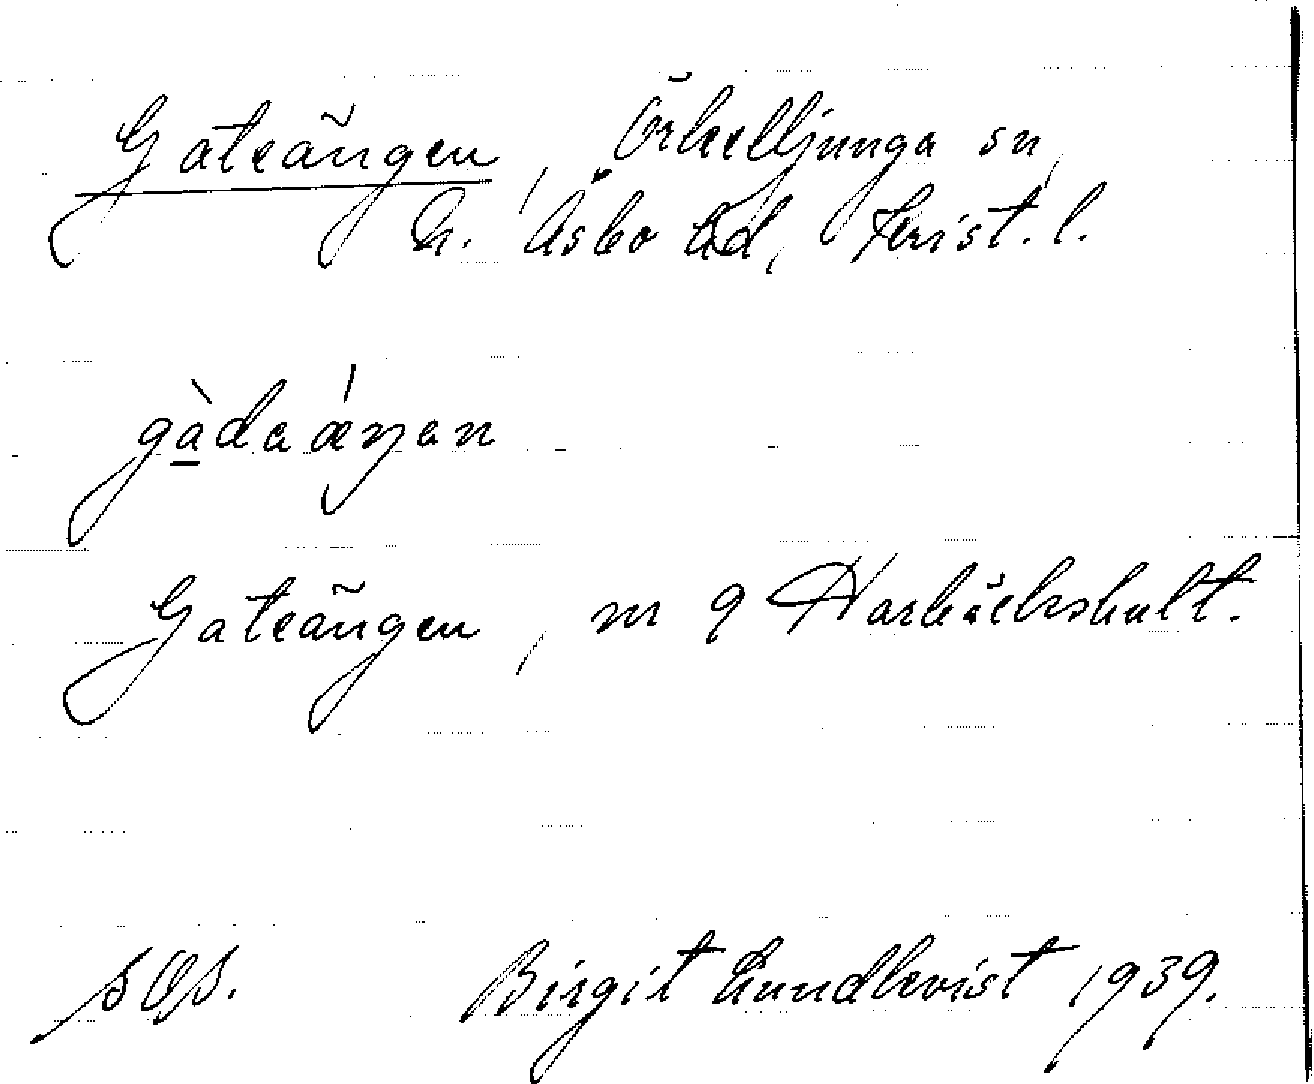 Gateängen, Örkelljunga sn,
N. Åsbo hd, Krist. l.
gàdaáŋan
Gateängen, m 9 Harbäckshult.
SOS. Birgit Lundkvist 1939.